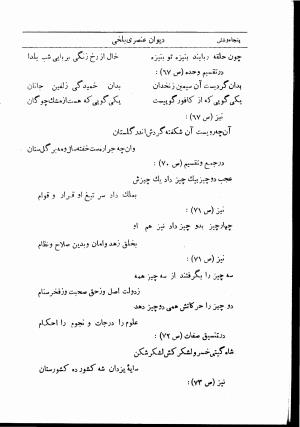 پنجاه‌وشش
دیوان عنصری بلخی
چون حلقه ربایند بنیزه تو بنیزه خال از رخ زنگی بربایی شب یلدا
درتقسیم وحده (ص ۶۷) :
بدان گردیست آن سیمین زنخدان بدان خمیدگی زلفین جانان
یکی گویی که از کافورگوییست یکی گویی که هست ازمشک‌چوگان
نیز (ص ۶۷) :
آن‌چه‌رویست آن شکفته گردش‌اندر گلستان
وان‌چه جراره‌ست خفته‌سال‌ومه بر گلستان
درجمع وتقسیم (ص ۷۰) :
عجب دوچیز بیک چیز داد یك چیزش
بملك داد سر تیغ او قرار و قوام
نیز (ص ۷۱) :
چهارچیز بدو چیز داد نیز هم او
بخلق زهد وامان وبدین صلاح ونظام
نیز (ص ۷۱) :
سه چیز را بگرفتند از سه چیز همه
زدولت اصل وزحق صحبت وزفخرسنام
دو چیز را حرکاتش همی دوچیز دهد
علوم را درجات و نجوم را احکام
درتنسیق صفات (ص ۷۲) :
شاه گیتی‌خسرو لشکرکش لشکرشکن
سایهٔ یزدان شه کشورده کشورستان
نیز (ص ۷۳) :